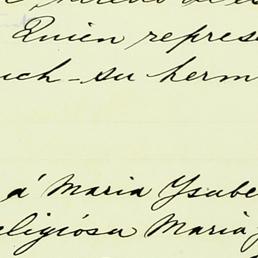 Quien represe
uch-su herm
á Maria Ysabe
eligiósa Maria